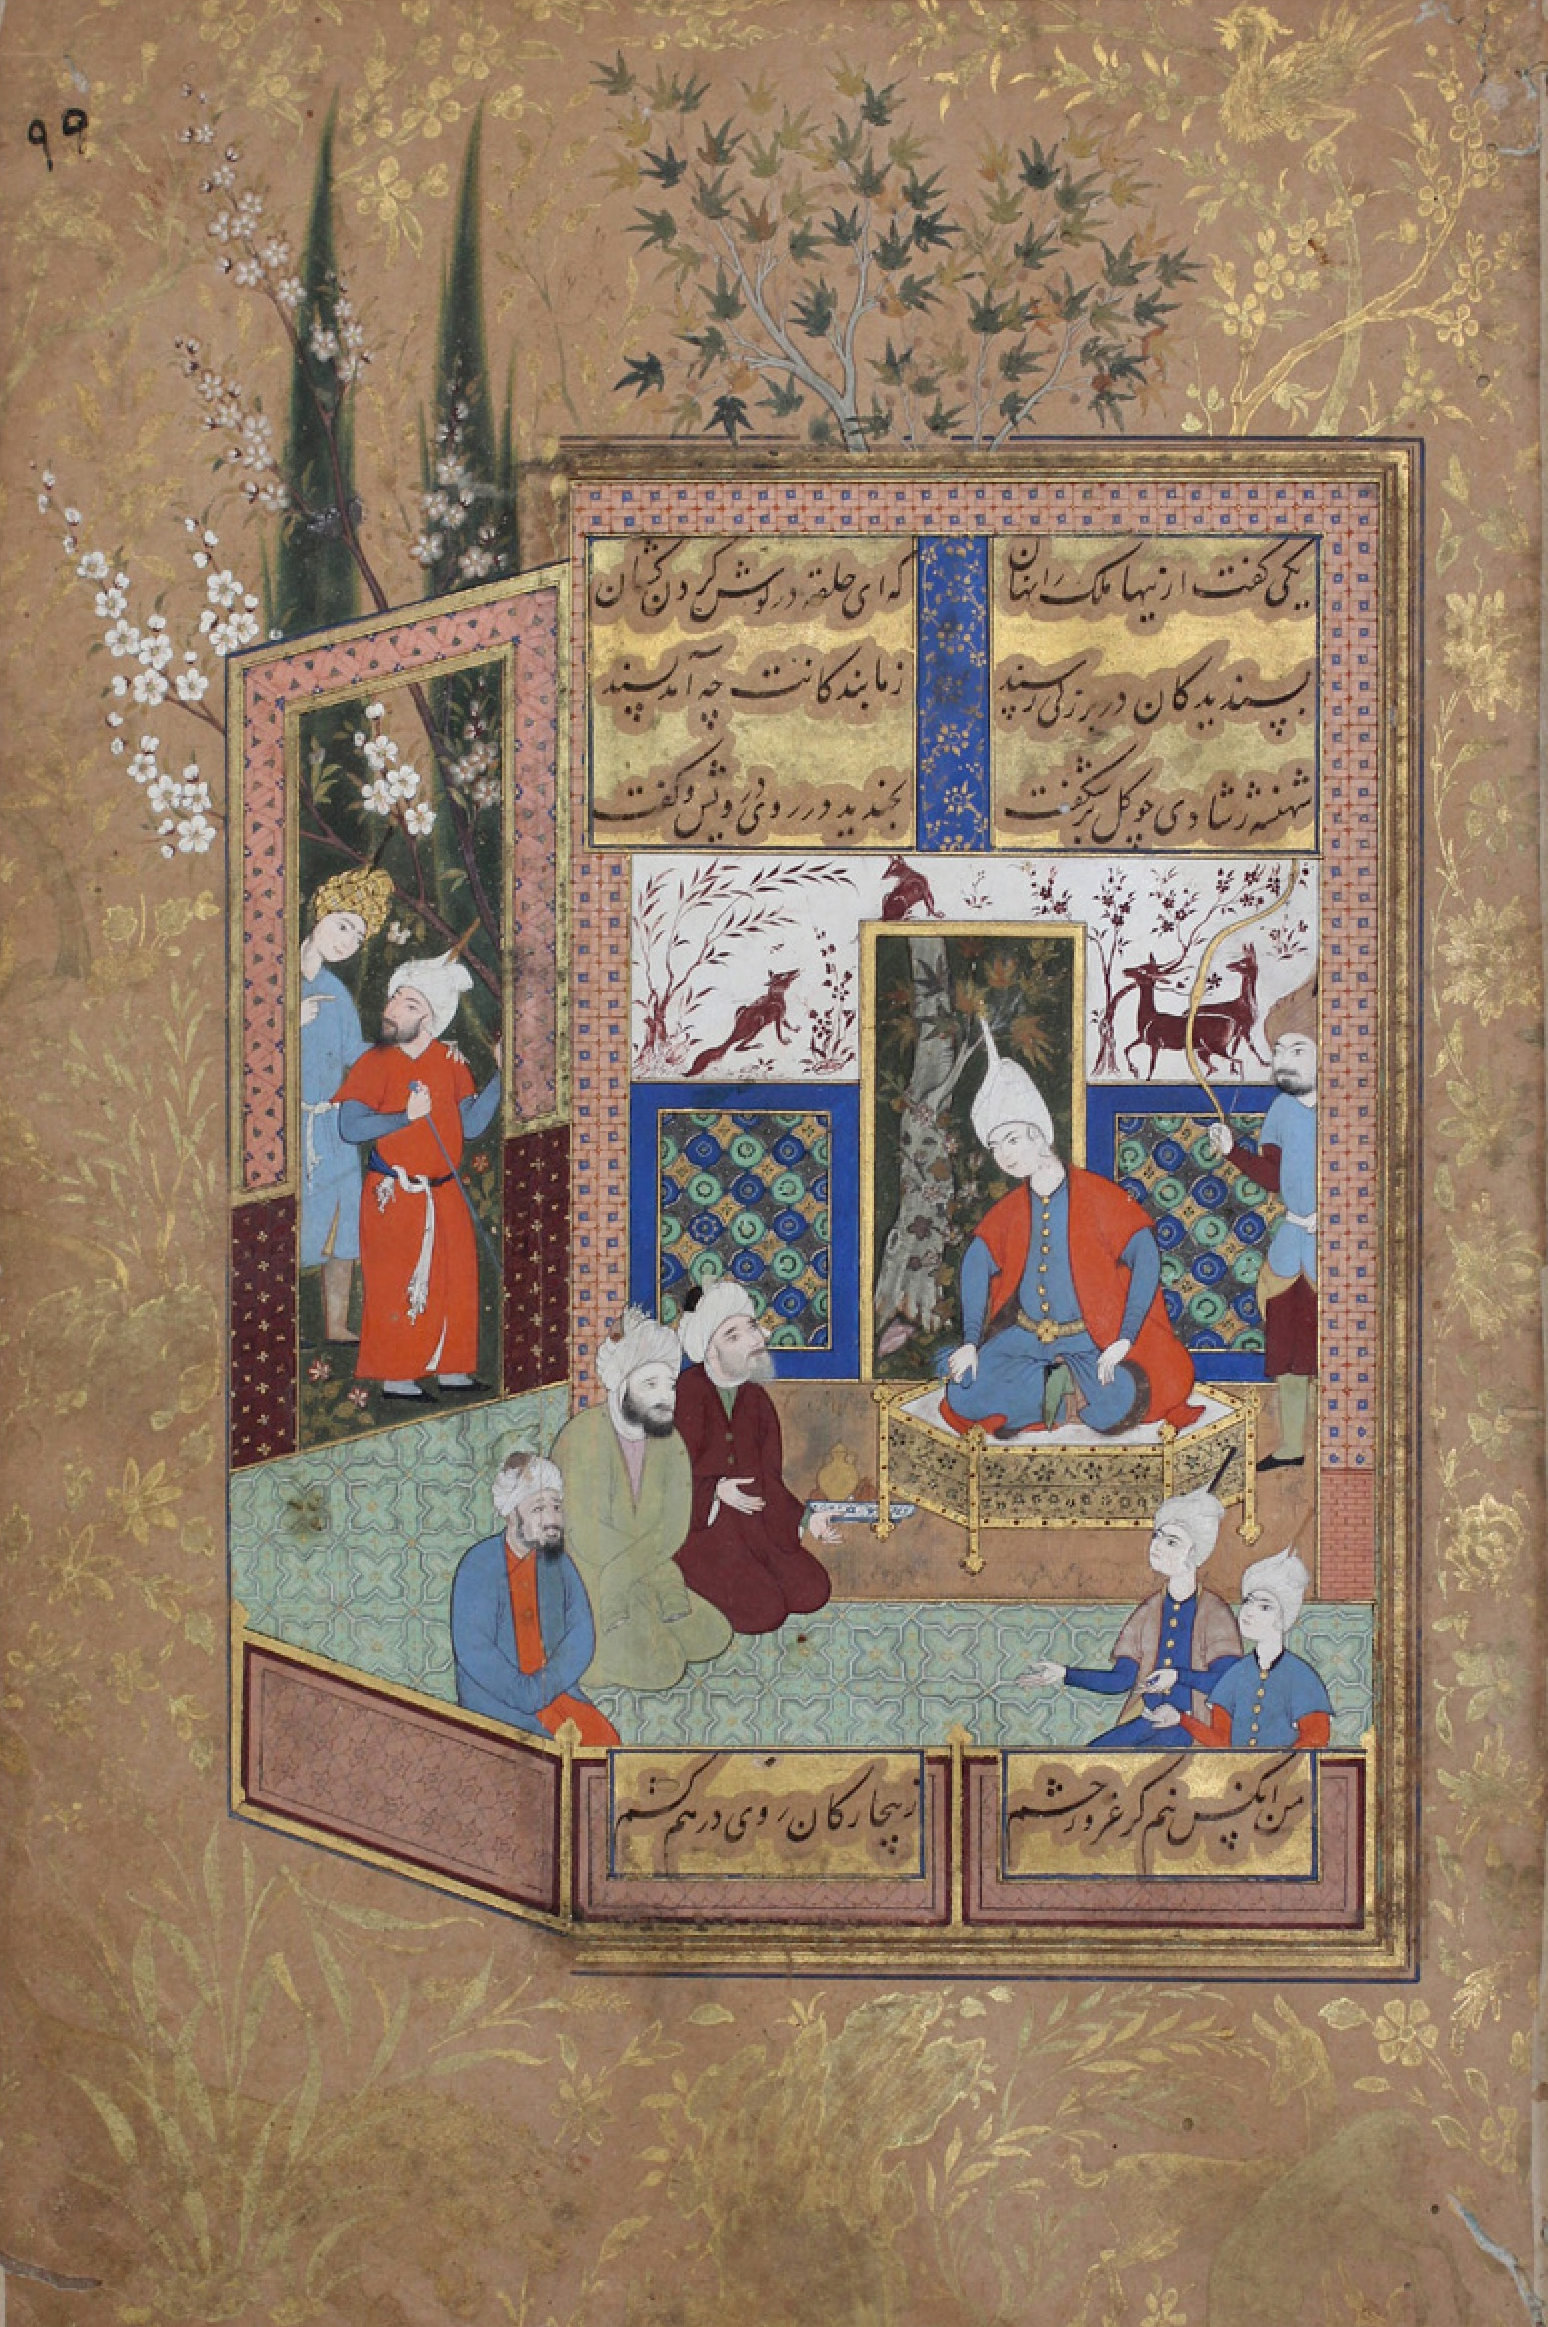 ۹۵
یکی کفت ازینها ملک را نهان
که ای حلقه در کوش کردن کشان
پسندیدکان در بزرکی رسند
ز ما بندکانت چه آمد پسند
شهنشه ز شادی چو کل برشکفت
بخندید در روی درویش و کفت
من آنکس نیم کز غرور حشم
ز بیچارکان روی در هم کشم